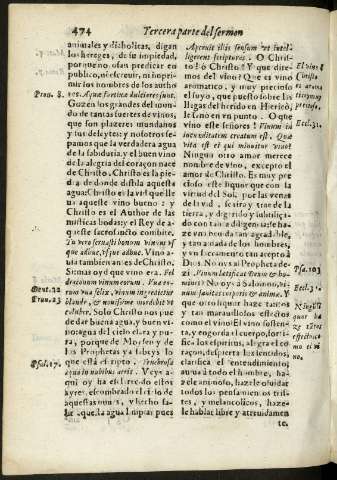 474
Tercera parte del sermon
animales y diabolicas, digan
los hereges, de su impiedad,
porque no osan predicar en
publico, ni escreuir, ni hopri
mir los nombres de los autho
res. Aqua
Gozen los grandes del mun-
do de tantas suertes de vinos,
que son plazeres mundanos
y sus deleytes: y nosotros se-
pamos que la verdadera agua
de la sabiduria, y el buen vino
de la alegria del coraçon nace
de Christo. Christo es la pie
dra de donde distila aquesta
agua: Christo es la vid que lle
ua aqueste vino bueno: y
Christo es el Author de las
misticas bodas: y el Rey de a-
queste sacrosancto combite.
Tu vero seruasti bonum vinum vs
que adhuc, vsque adhuc. Vino a-
uia tambien antes de Christo.
Si mas oyd que vino era. Fel
draconum vinum eorum.
Solo Christo nos pue
de dar buena agua, y buen vi-
no: agua del cielo clara y pu-
ra, porque de Moysen y de
los Prophetas ya sabeys lo
que està escripto. Tenebrosa
aqua in nubibus aeris. Veys a-
qui oy ha esclarecido estos
ayres, escombrado el cielo de
aquestas nuues, y hecho sa-
lir, que la agua limpia: pues
Aperuit illis sensum vt intell-
ligerent scripturas. O Chris-
to! ò Christo! Y que dire-
mos del vino? Que es vino
aromatico, y muy precioso
el suyo, que puesto sobre las
llagas del herido en Hiericò,
le sanò en vn punto. O que
vino este señores! Vinum in
iucunditatem creatum est. Quæ
vita est ei qui minuitur vino?
Ningun otro amor merece
nombre de vino, excepto el
amor de Christo. Es muy pre
cioso este liquor que con la
virtud del Sol, por las venas
de la vid, se tira y trae de la
tierra, y digerido y subtiliça-
do con tanta diligencia se ha-
ze vna cosa tan agradable,
y tan amada de los hombres,
y vn sacramento tan acepto à
Dios. No oys al Propheta de-
zir. Vinum lætificat Deum & ho-
mines? No oys à Salomon, vi-
num sanitas corporis & animæ. Y
que otro liquor haze tantos
y tan marauillosos effectos
como el vino? El vino sustẽn-
ta, y engorda el cuerpo, forti-
fica los espiritus, alegra el co-
raçon, despierta los sentidos,
clarifica el entendimiento:
auiua à todo el hombre, ha-
zele animoso, hazele oluidar
todos los pensamientos tris-
tes, y melancolicos, hazele
le hablar libre y atreuidamen
te.
Prou. 8.
Deut. 32
Prou. 23
Psal. 17.
El vino d
Christo
es aroma
tico y muy
precioso.
Eccl. 31.
Psa. 103
Eccl. 31.